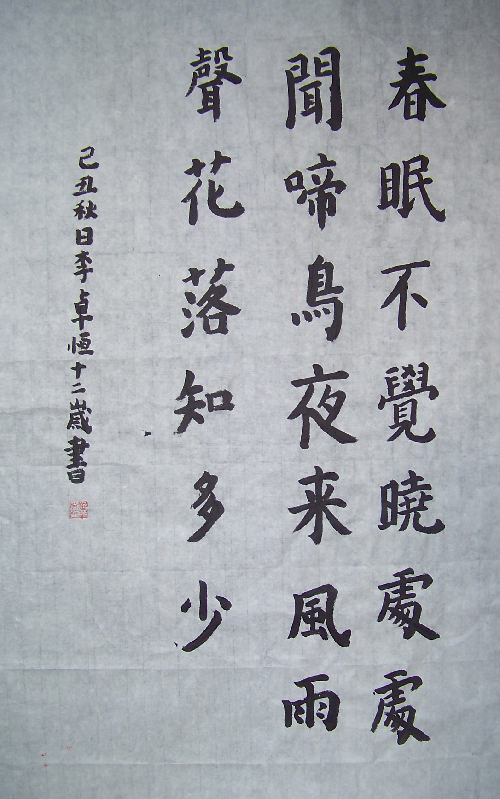 春眠不覺曉處處
聞啼鳥夜来風雨
聲花落知多少
己丑秋日李卓恒十二歲書